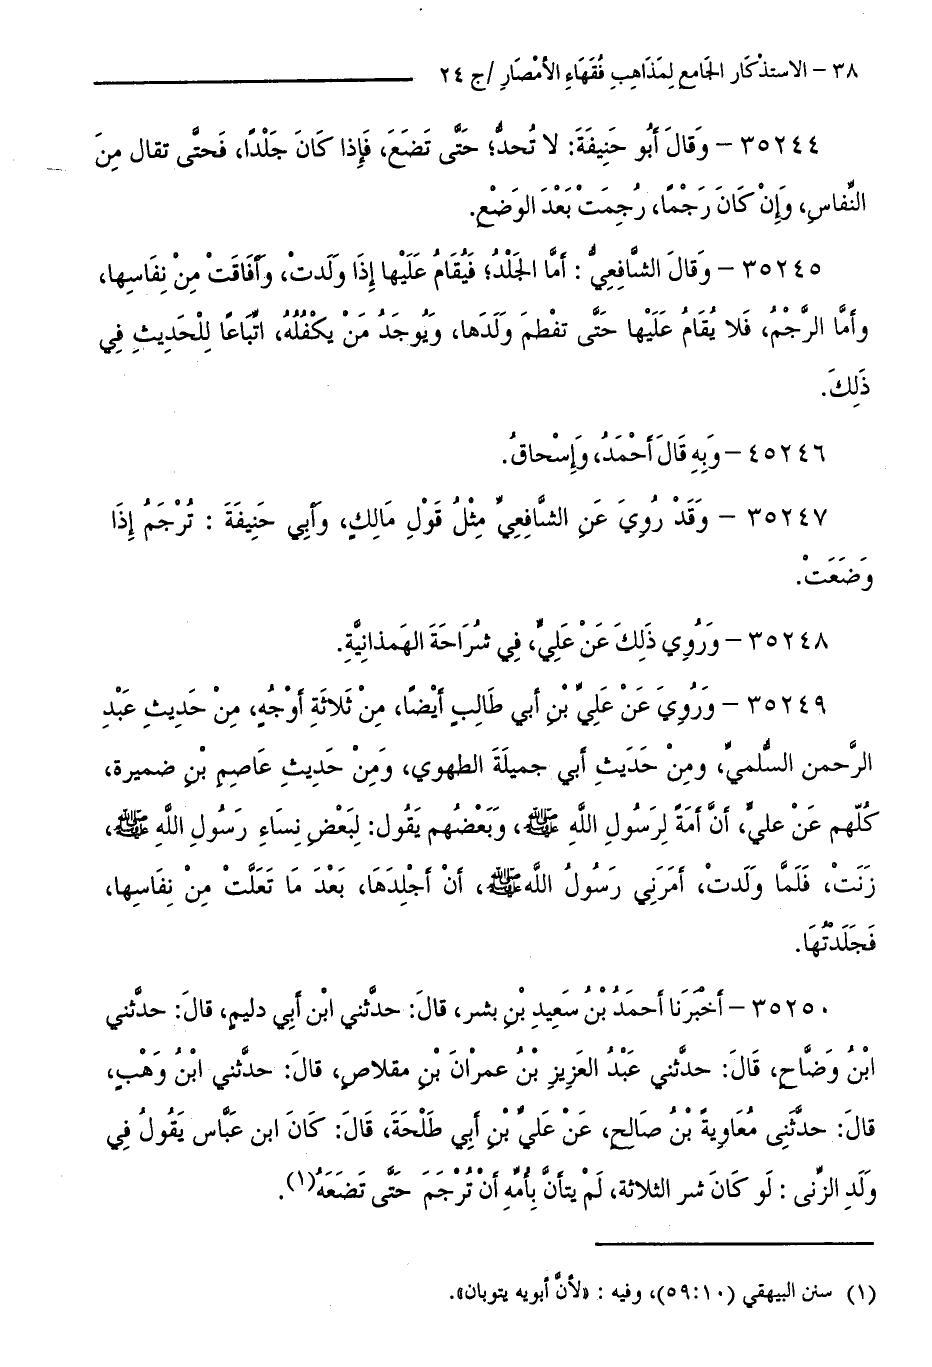 ٣٨ – الاستذْكار الجَامع لِمَذَاهِبِ فُقَهَاءِ الأمْصَارِ /ج ٢٤
٣٥٢٤٤ – وَقَالَ أَبُو حَنِيفَةَ: لا تُحدُّ؛ حَتَّى تَضَعَ، فَإِذا كانَ جَلْدًا، فَحتَّى تقال مِنَ
النِّفاسِ، وَإِنْ كَانَ رَجْمًا، رُجِمَتْ بَعْدَ الوَضْعِ.
٣٥٢٤٥ – وَقَالَ الشَّافعِيُّ : أمَّا الجَلْدُ؛ فَيُقَامُ عَلَيْها إِذَا وَلَدتْ، وَأفَاقَتْ مِنْ نِفَاسِها،
وأمَّا الرَّجْمُ، فَلا يُقَامُ عَلَيْها حَتَّى تفْطمَ وَلَدَها، وَيُوجَدُ مَنْ يكْفُلُهُ، اتِّبَاعًا لِلْحَدِيثِ فِي
ذَلِكَ.
٤٥٢٤٦ – وَبِهِ قَالَ أَحْمَدُ، وَإِسْحاقُ.
٣٥٢٤٧ – وَقَدْ رُوِيَ عَنِ الشَّافِعِيِّ مِثْلُ قَوْلِ مَالِكٍ، وَأبِي حَنِيفَةَ : تُرْجَمُ إِذَا
وَضَعَتْ.
٣٥٢٤٨ – وَرُوِي ذَلِكَ عَنْ عَلِيٍّ، فِي شُرَاحَةَ الهَمذانِيَّةِ.
٣٥٢٤٩ – وَرُوِيَ عَنْ عَلِيِّ بْنِ أبي طَالِبٍ أَيْضًا، مِنْ ثَلاثَةِ أوْجُهٍ، مِنْ حَدِيثِ عَبْدِ
الرَّحمن السُّلَمِيِّ، ومِنْ حَدَيثِ أبِي جميلَةَ الطهوي، وَمِنْ حَدِيثِ عَاصِمِ بْنِ ضميرة،
كُلّهم عَنْ عليٍّ، أنَّ أمَةً لِرَسُولِ اللَّهِ ﷺ، وَبَعْضُهم يَقُول: لِبَعْضِ نِساءِ رَسُولِ اللَّهِ ﷺ،
زَنَتْ، فَلَمَّا وَلَدتْ، أمَرَنِي رَسُولُ اللَّهِ ﷺ، أنْ أجْلِدَهَا، بَعْدَ مَا تَعَلَّتْ مِنْ نِفاسِها،
فَجَلَدْتُهَا.
٣٥٢٥٠ – أخْبَرَنَا أحمَدُ بْنُ سَعِيدِ بْنِ بشر، قالَ: حدَّثني ابْن أبي دليمٍ، قالَ: حدثَّني
ابْنُ وَضَّاحٍ، قَالَ: حدَّثني عَبْدُ العَزِيزِ بْنُ عمرْانَ بْنِ مقلاصٍ، قالَ: حدَّثني ابْنُ وَهْبٍ،
قالَ: حدثَّنَى مُعَاوِيةً بْنُ صَالِحٍ، عَنْ عَلِيِّ بْنِ أبِي طَلْحَةَ، قَالَ: كَانَ ابن عَبَّاس يَقُولُ فِي
وَلَدِ الزِّنى : لَو كَانَ شر الثلاثة، لَمْ يتأنَّ بِأُمِّهِ أنْ تُرْجَمَ حَتَّى تَضَعَهُ(١).
(١) سنن البيهقي (٥٩:١٠)، وفيه : «لأنَّ أبويه يتوبان».